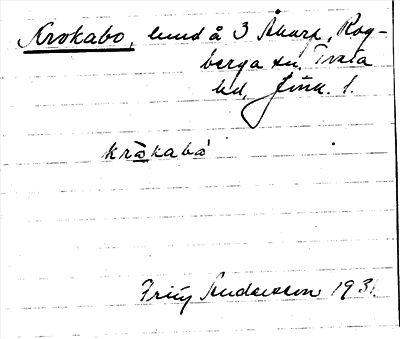 Krokabo, lund å 3 Åkarp, Rog-
berga sn, Tveta
hd, Jönk. l.
kråkabå
Fritz Andersson 193.